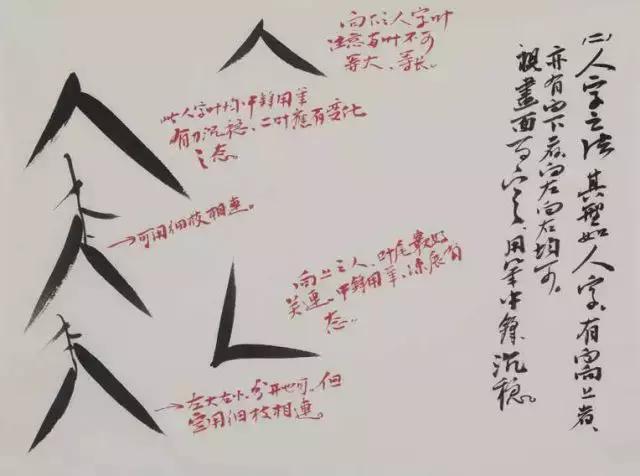 (二)人字之法 其型如人字，有向上者、
亦有向下者，向左向右均可。
视画面而定，用笔中锋沉稳。
向下之人字叶
注意每叶不可
等大、等长。
此人字叶均中锋用笔
有力沉稳、二叶应有变化
之态。
→可用细枝相连。
向上之人、叶尾最好
关连，中锋用笔、
态。
→左大右小，分开也可，但
宜用细枝相连。